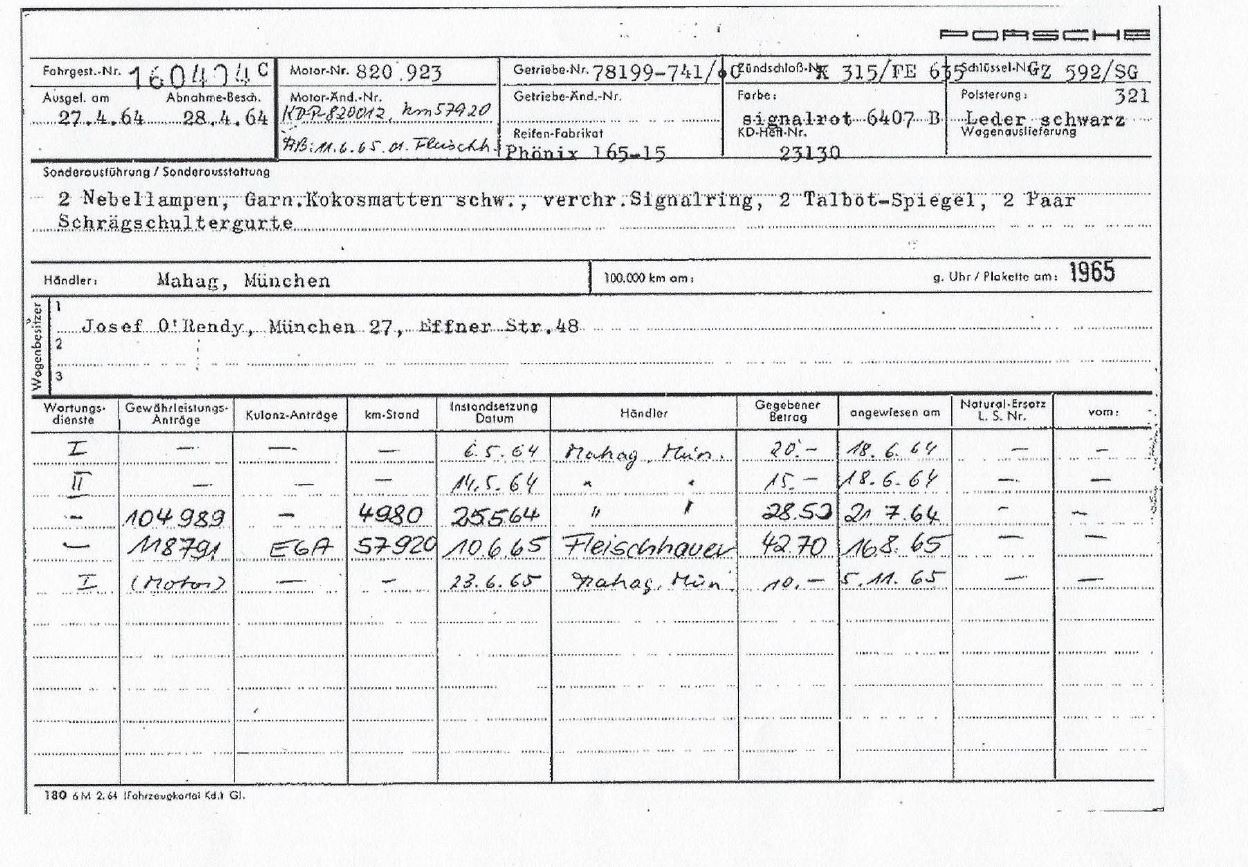 PORSCHE
Fahrgest.-Nr. 160404 C Motor-Nr. 820 923 Getriebe-Nr. 78199-741/ Zündschloß-Nr. K 315/FE 635 Schlüssel-Nr. GZ 592/SG
Ausgel. am Abnahme-Besch. Motor-Änd.-Nr. Getriebe-Änd.-Nr. Farbe: Polsterung: 321
27.4.64 28.4.64 KDP-820012, km57920 signalrot 6407 B Leder schwarz
AB: 11.6.65 Fleischh. Reifen-Fabrikat KD-Heft-Nr. Wagenauslieferung
Phönix 165-15 23130
Sonderausführung / Sonderausstattung
2 Nebellampen, Garn.Kokosmatten schw., verchr.Signalring, 2 Talbot-Spiegel, 2 Paar
Schrägschultergurte
Händler: Mahag, München 100.000 km am: g. Uhr / Plakette am: 1965
Wagenbesitzer
1
Josef O'Rendy, München 27, Effner Str.48
2
3
Wartungs- Gewährleistungs- Kulanz-Anträge km-Stand Instandsetzung Händler Gegebener angewiesen am Natural-Ersatz vom:
dienste Anträge Datum Betrag L. S. Nr.
I — — — 6.5.64 Mahag, Mün. 20.- 18.6.64 — —
II — — — 14.5.64 " " 15.- 18.6.64 — —
- 104989 - 4980 25564 " " 28.50 21 7.64 - -
- 118791 EGA 57920 10.6.65 Fleischhauer 42.70 168.65 — —
I (Motor) — - 23.6.65 Mahag, Mün. 10.- 5.11.65 — —
180 6 M 2.64 (Fahrzeugkartei Kd.) Gl.